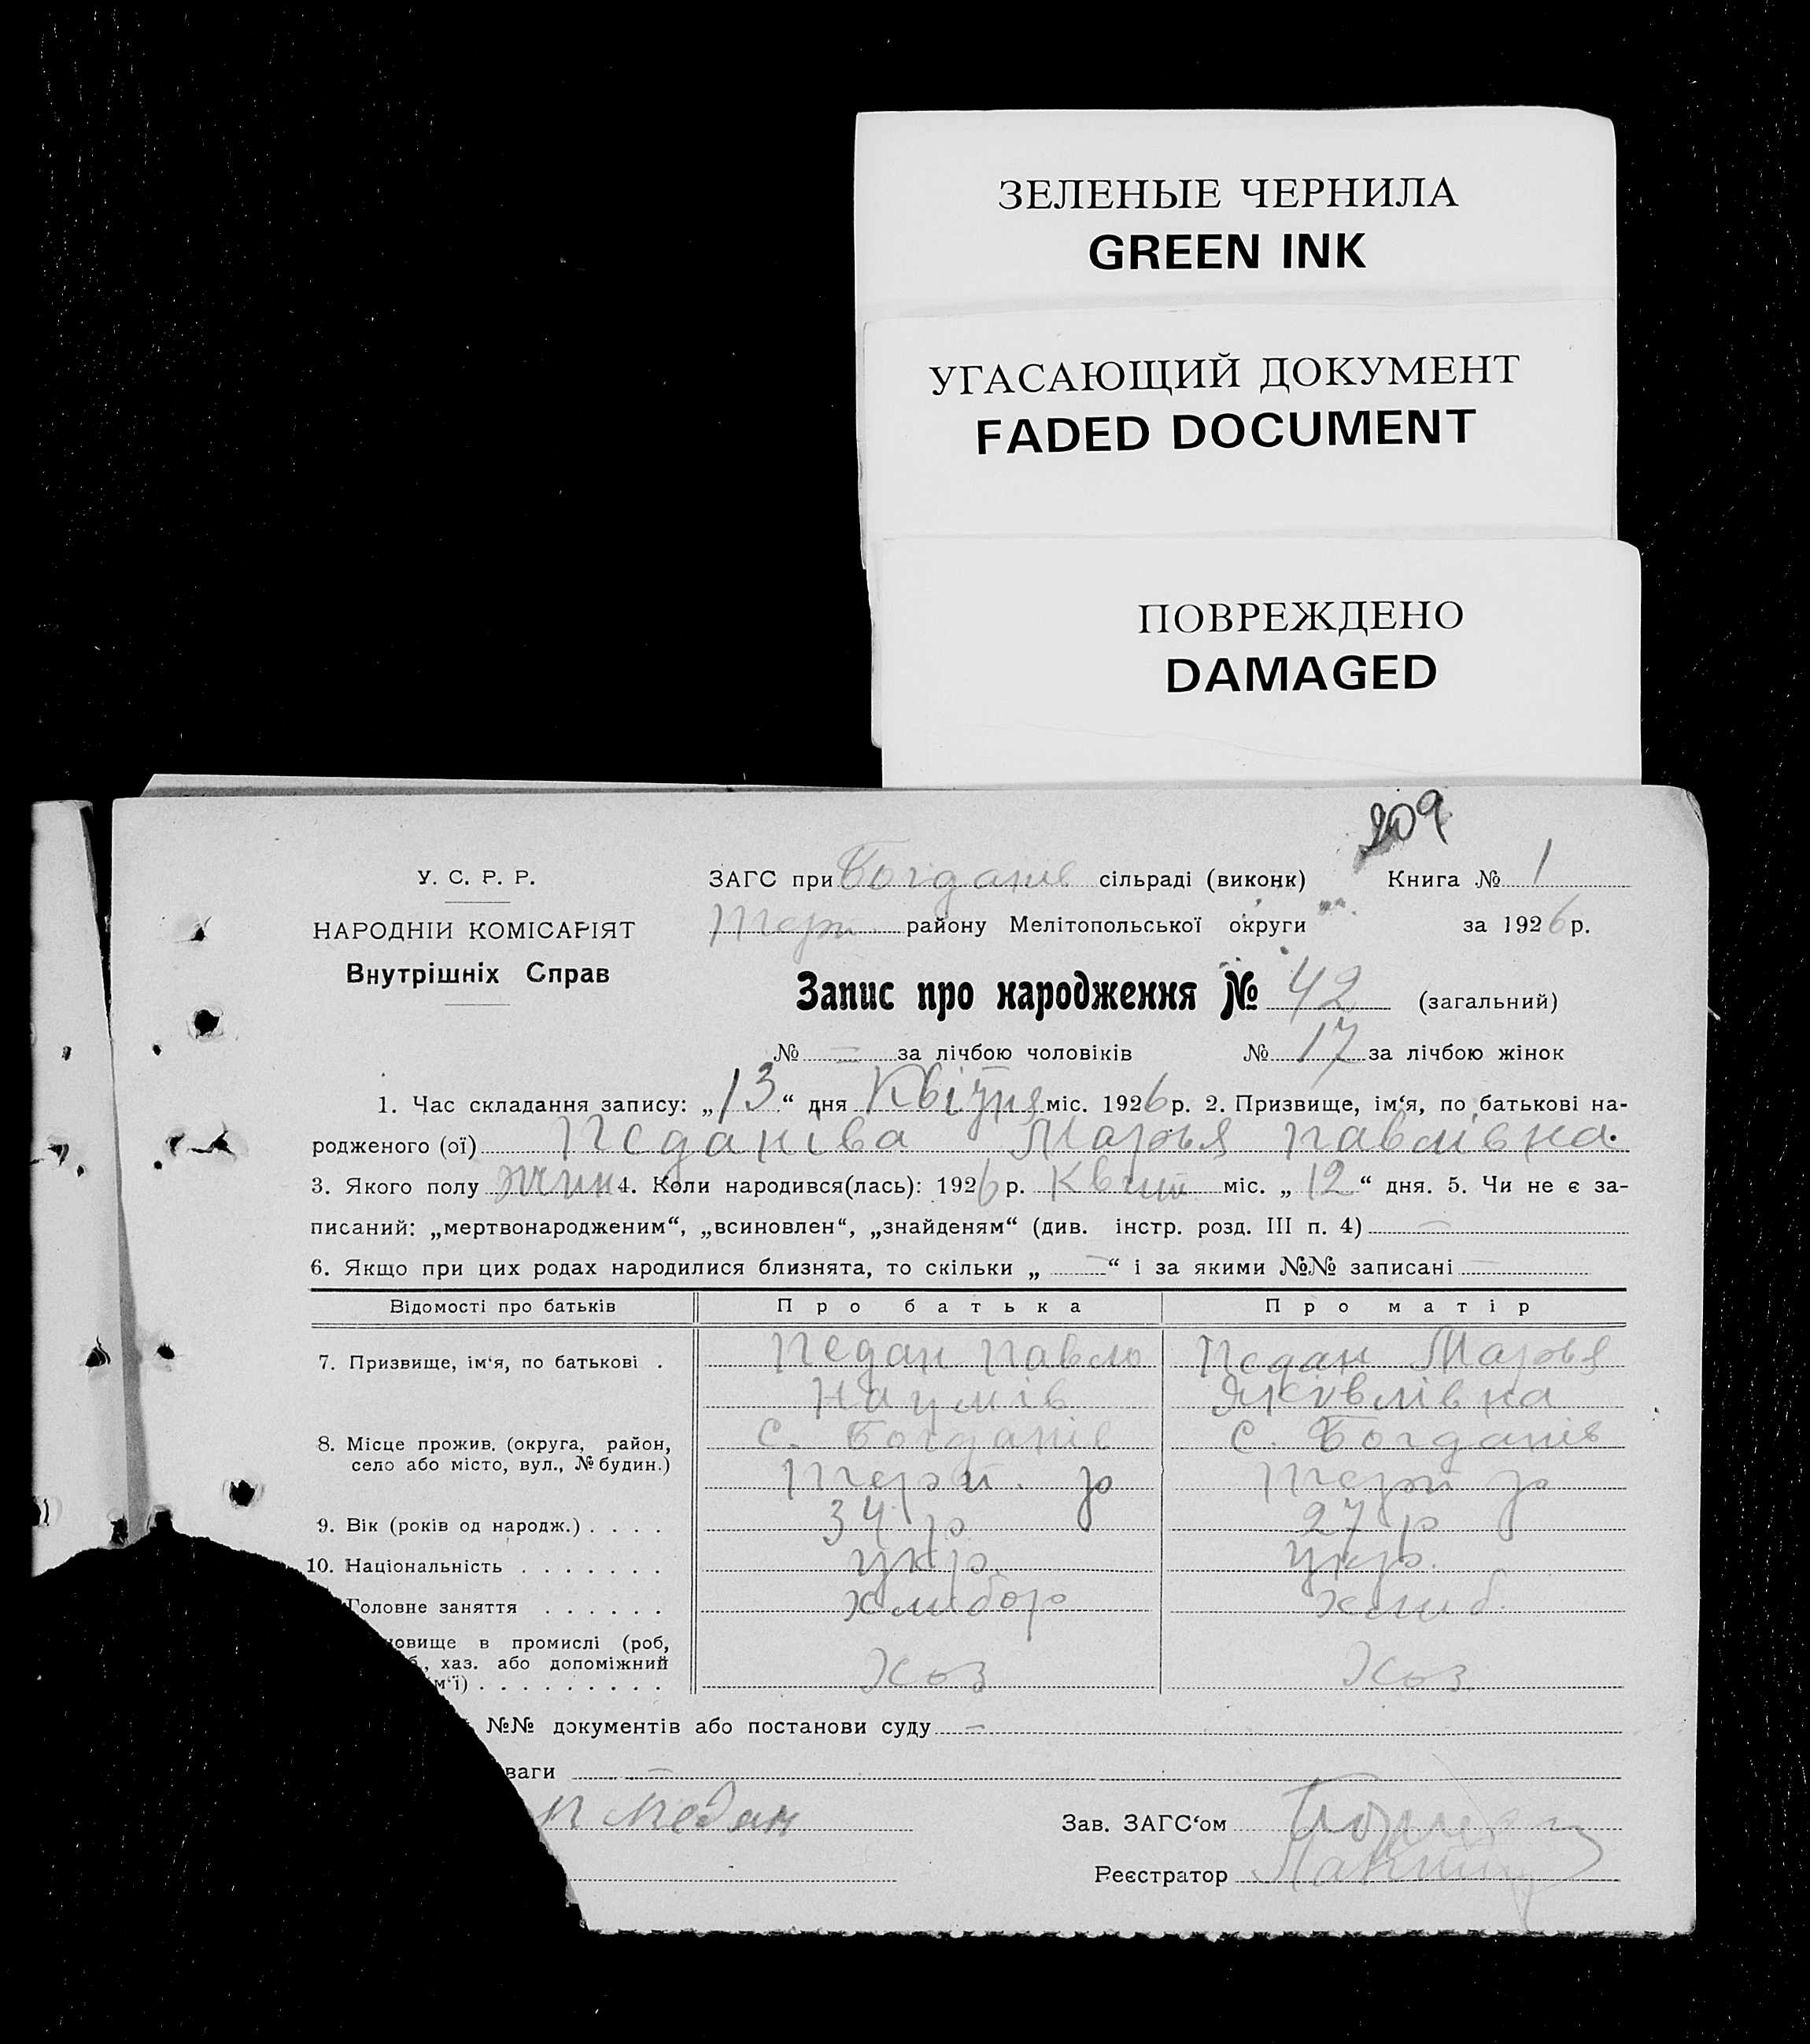 ЗЕЛЕНЫЕ ЧЕРНИЛА
GREEN INK
УГАСАЮЩИЙ ДОКУМЕНТ
FADED DOCUMENT
ПОВРЕЖДЕНО
DAMAGED
209
У. С. Р. Р.
НАРОДНІЙ КОМІСАРІЯТ
Внутрішніх Справ
ЗАГС при Богданів сільраді (виконк) Книга № 1
району Мелітопольської округи за 1926 р.
Запис про народження № 42 (загальний)
№ — за лічбою чоловіків № 17 за лічбою жінок
1. Час складання запису: „13“ дня Квітня міс. 1926 р. 2. Призвище, ім‘я, по батькові на-
родженого (ої) Педаніва Марья Павлівна.
3. Якого полу жін 4. Коли народився(лась): 1926 р. Квітн міс. „12“ дня. 5. Чи не є за-
писаний: „мертвонародженим“, „всиновлен“, „знайденям“ (див. інстр. розд. III п. 4) —
6. Якщо при цих родах народилися близнята, то скільки „—“ і за якими №№ записані —
Відомості про батьків Про батька Про матір
7. Призвище, ім‘я, по батькові . Педан Павло Педан Марья
Наумів Яківлівна
8. Місце прожив. (округа, район, с. Богданів с. Богданів
село або місто, вул., № будин.) р р
9. Вік (років од народж.) . . . . 34 р 27 р
10. Національність . . . . . . . укр. укр.
Головне заняття . . . . . . хлибор хлиб.
новище в промислі (роб,
б., хаз. або допоміжний
м‘ї) . . . . . . . . . Хоз Хоз
№№ документів або постанови суду —
ваги —
П Педан Зав. ЗАГС‘ом
Реєстратор